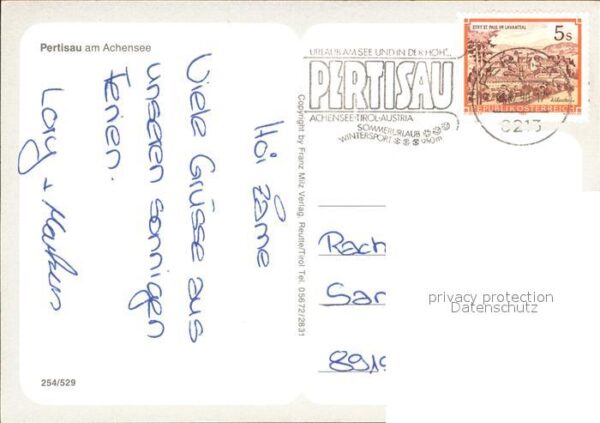 Pertisau am Achensee
Hoi Zäme
Viele Grüsse aus
unseren sonnigen
Ferien.
Lory + Markus
254/529
Copyright by Franz Milz Verlag, Reutte/Tirol Tel. 05672/2831
URLAUB AM SEE UND IN DER HÖH'...
PERTISAU
ACHENSEE·TIROL·AUSTRIA
SOMMERURLAUB
WINTERSPORT
STIFT ST. PAUL IM LAVANTTAL
5s
REPUBLIK ÖSTERREICH
6213
Rach
San
8919
privacy protection
Datenschutz